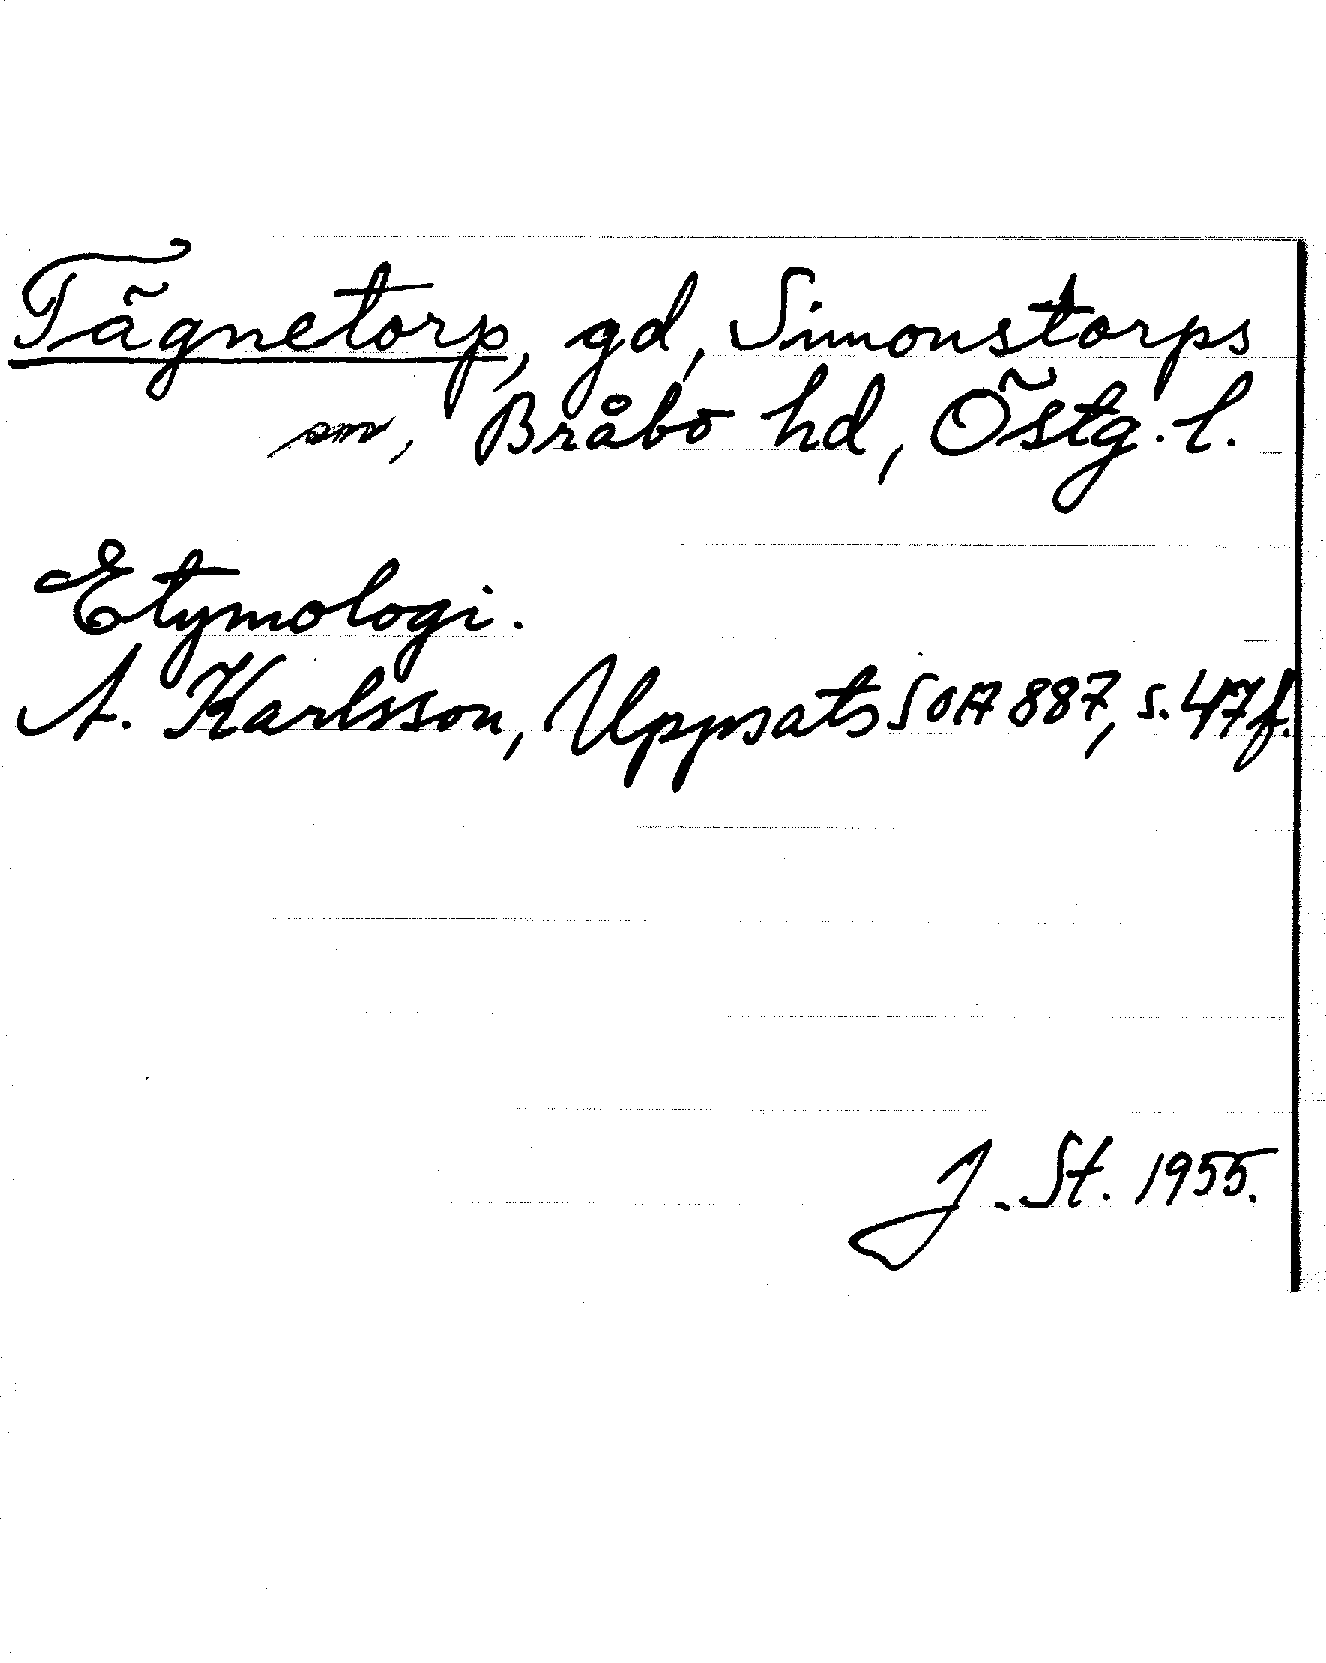 Tägnetorp, gd, Simonstorps
sn, Bråbo hd, Östg. l.
Etymologi.
A. Karlsson, Uppsats SOA 887, s. 47 f.
J. St. 1955.